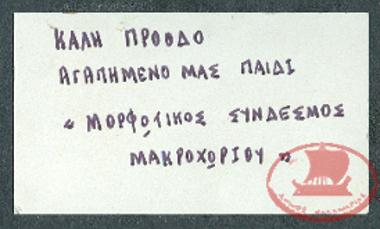 ΚΑΛΗ ΠΡΟΟΔΟ
ΑΓΑΠΗΜΕΝΟ ΜΑΣ ΠΑΙΔΙ
« ΜΟΡΦΩΤΙΚΟΣ ΣΥΝΔΕΣΜΟΣ
ΜΑΚΡΟΧΩΡΙΟΥ »
ΔΗΜΟΣ